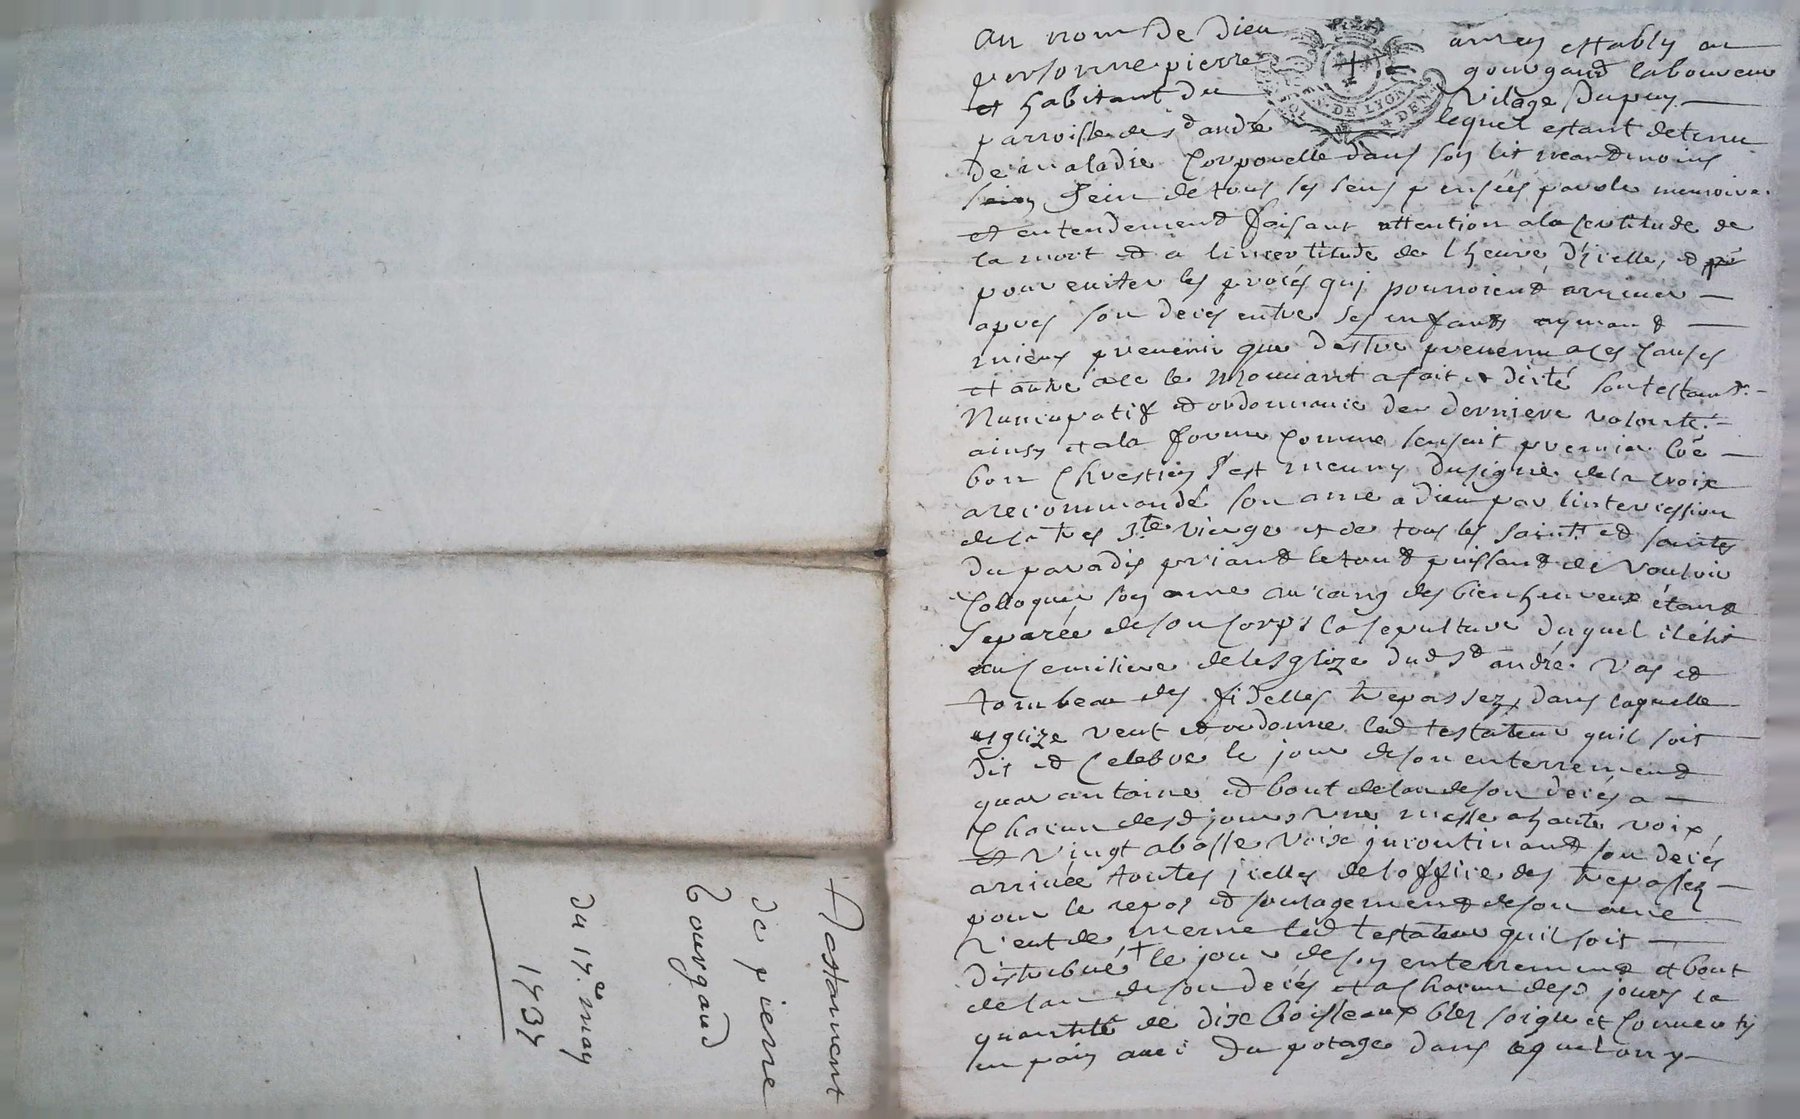 Testament
de pierre
Gourgaud
du 17e. may
1737
Au nom De Dieu amen estably en
personne pierre gourgaud laboureur
et habitant du vilage Dupuy
parroisse de st andré lequel estant detenu
De maladie Corporelle dans son lit neantmoins
sain Sein de tous ses sens pensées parole memoire
et entendement faisant attention ala Certitude de
la mort et a lincertitude de lheure d'icelle, et
pour eviter les procés qui pourroient arriver
apres son deces entre ses enfants aymant
mieux prevenir que d'estre prevenu a ces Causes
et autre ace le Mouvant a fait et dicté son testamt.
Nuncupatif et ordonnance de derniere volonté
ainsy et ala forme Comme sensuit premier. Coe
bon Chrestien s'est meuny du signe de la Croix
a recommandé son ame a Dieu par lintercession
de la tres Ste. vierge et de tous les saints et saintes
Du paradis priant le tout puissant de vouloir
Colloquer son ame au rang des bien heureux étant
separée de son Corps la sepulture duquel il élit
au semitiere de lesglize dud st andré. vas et
tombeau des fidelles trepassez, dans laquelle
esglize veut et ordonne led testateur quil soit
Dit et Celebré le jour de son enterrement
quarantaine et bout de lan de son decés a
Chacun desd jours une messe a haute voix
et vingt abasse voix incontinant son decés
arrivée toutes icelles de loffice des trepassez
pour le repos et soulagement de son ame
veut de meme led testateur quil soit
distribué + le jour de son enterrement et bout
de lan de son decés et a Chacun desd jours la
quantité de dix boisseaux bled soigle et Converty
en pain avec du potage dans lequel on y